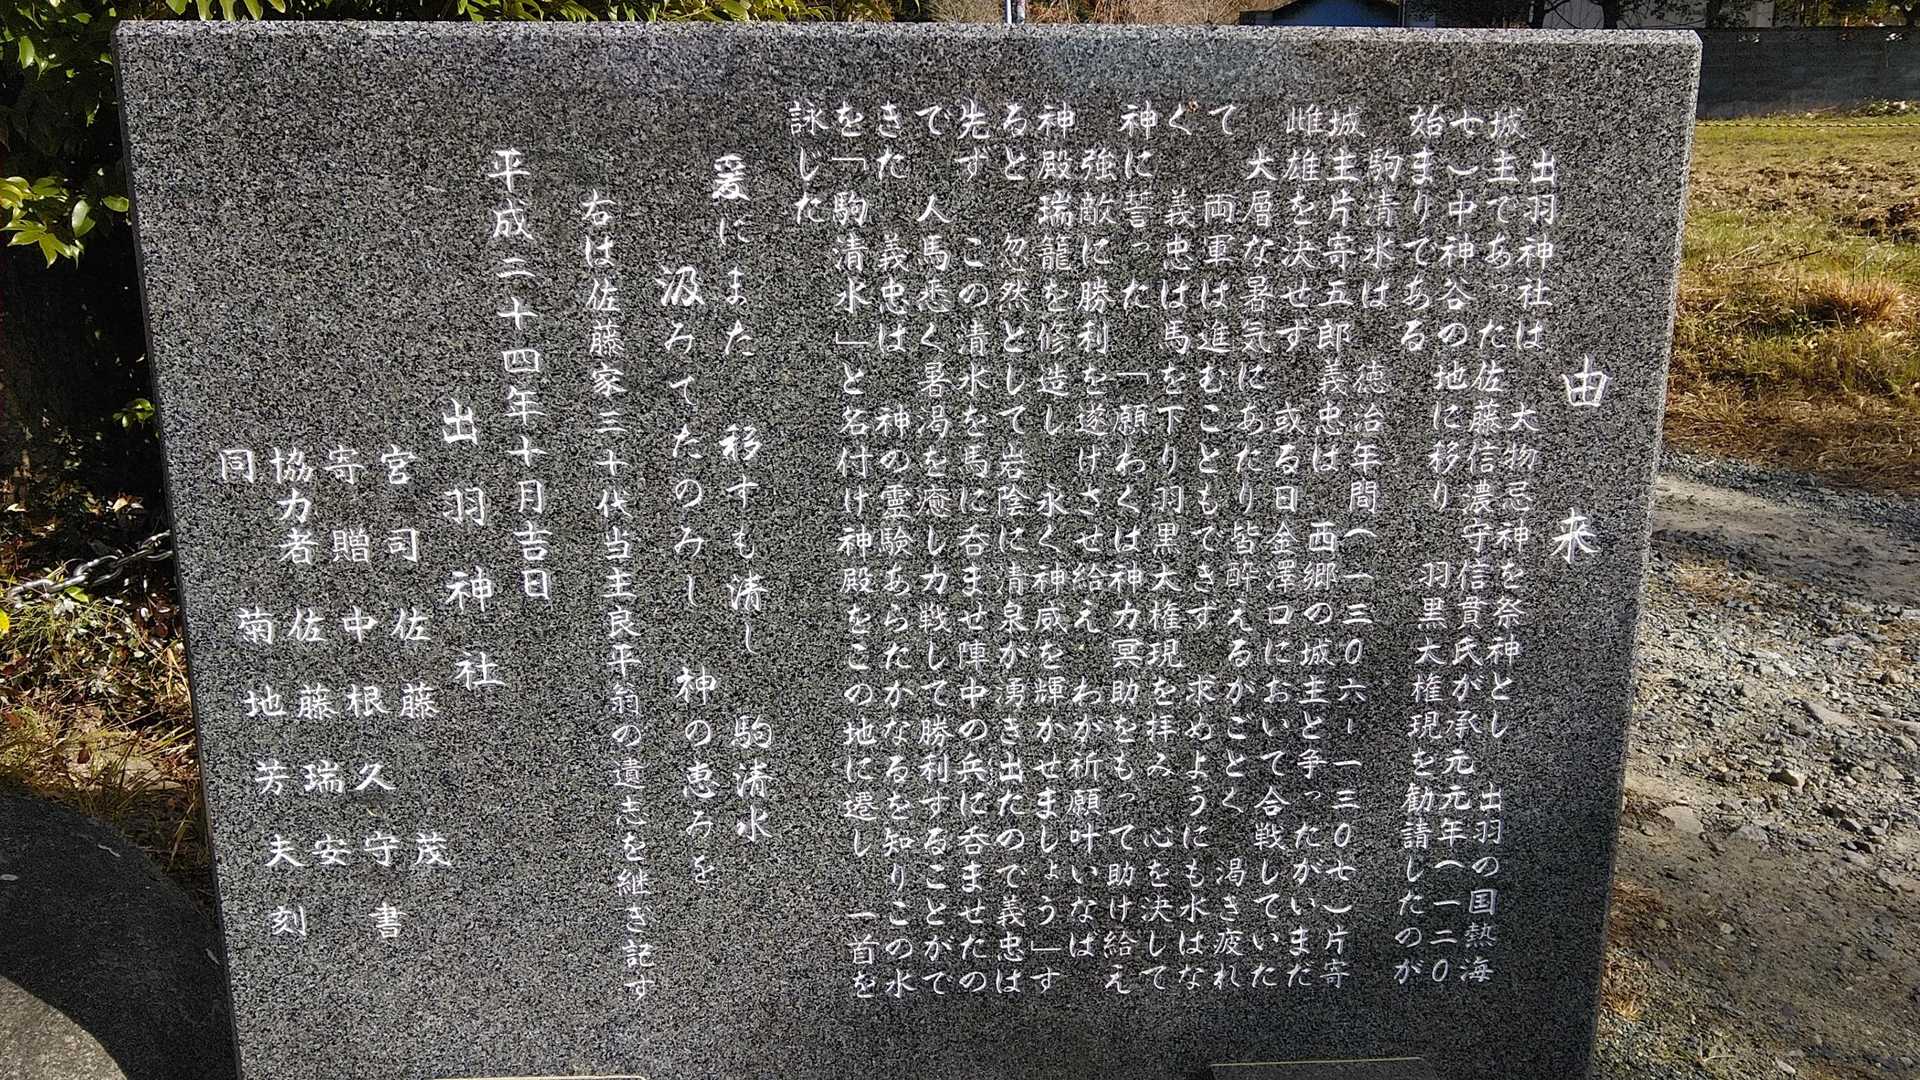 由来
出羽神社は　大物忌神を祭神とし　出羽の国熱海
城主であった佐藤信濃守信貫氏が承元元年(一二〇
七)中神谷の地に移り　羽黒大権現を勧請したのが
始まりである
駒清水は　徳治年間(一三〇六〜一三〇七)片寄
城主片寄五郎義忠は　西郷の城主と争ったがいまだ
雌雄を決せず　或る日金澤口において合戦していた
大層な暑気にあたり皆酔えるがごとく　渇き疲れ
て　両軍は進むこともできず　求めようにも水はな
く　義忠は馬を下り羽黒大権現を拝み　心を決して
神に誓った　「願わくは神力冥助をもって助け給え
強敵に勝利を遂げさせ給え　わが祈願叶いなば
神殿瑞籠を修造し　永く神威を輝かせましょう」す
ると　忽然として岩陰に清泉が湧き出たので義忠は
先ず　この清水を馬に呑ませ陣中の兵に呑ませたの
で　人馬悉く暑渇を癒し力戦して勝利することがで
きた　義忠は　神の霊験あらたかなるを知りこの水
を「駒清水」と名付け神殿をこの地に遷し　一首を
詠じた
爰にまた　移すも清し　駒清水
汲みてたのみし　神の恵みを
右は佐藤家三十代当主良平翁の遺志を継ぎ記す
平成二十四年十月吉日
出羽神社
宮司　佐藤　茂
寄贈　中根久守　書
協力者　佐藤瑞安
同　菊地芳夫　刻